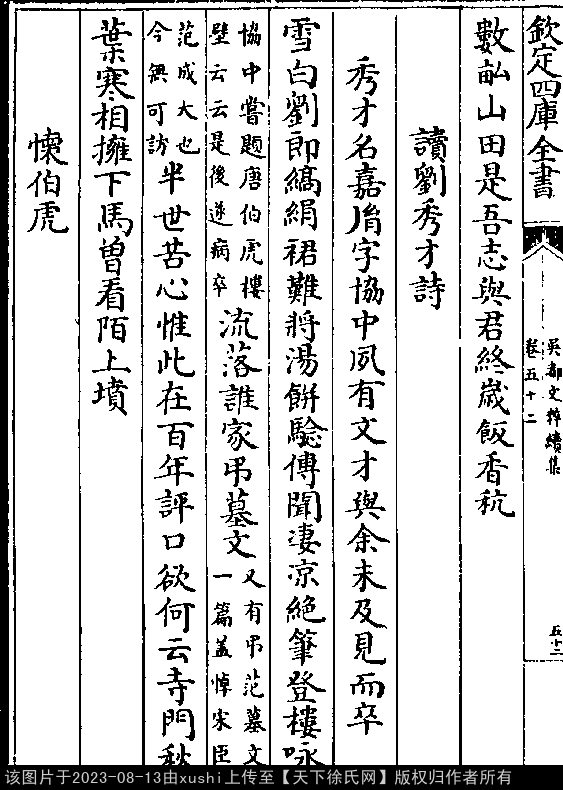 欽定四庫全書
吳都文粹續集
卷五十二
五十二
數畝山田是吾志與君終歲飯香秔
讀劉秀才詩
秀才名嘉䋞字協中夙有文才與余未及見而卒
雪白劉郎縞絹裙難將湯餅驗傳聞凄凉絶筆登樓咏
協中嘗題唐伯虎樓
壁云云是後遂病卒
流落誰家弔墓文
又有弔范墓文
一篇蓋悼宋臣
范成大也
今無可訪
半世苦心惟此在百年評口欲何云寺門秋
葉寒相擁下馬曽看陌上墳
懷伯虎
该图片于2023-08-13由xushi上传至【天下徐氏网】版权归作者所有